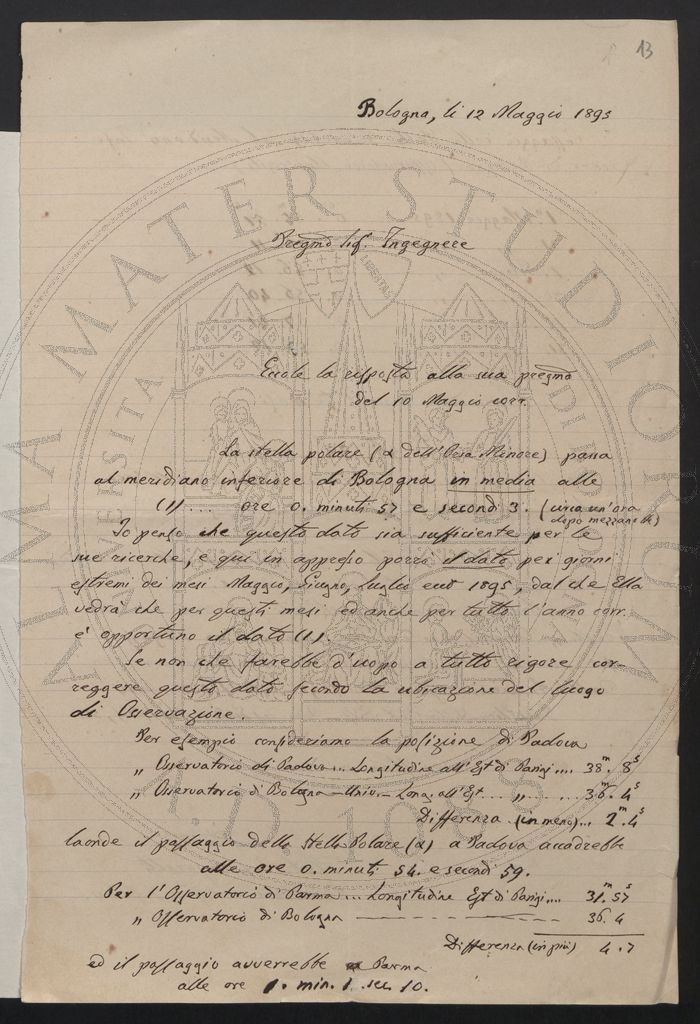 13
Bologna, li 12 Maggio 1895
Pregmo Sig. Ingegnere
Eccole la risposta alla sua pregma
del 10 Maggio corr.
La stella polare (α dell'Orsa Minore) passa
al meridiano inferiore di Bologna in media alle
(1) ... ore 0. minuti 57 e secondi 3. (circa un'ora
dopo mezzanotte)
Io penso che questo dato sia sufficiente per le
sue ricerche, e qui in appresso porrò il dato pei giorni
estremi dei mesi Maggio, Giugno, Luglio 1895, dal che Ella
vedrà che per questi mesi ed anche per tutto l'anno corr.
e' opportuno il dato (1).
Se non che farebbe d'uopo a tutto rigore cor-
reggere questo dato secondo la ubicazione del luogo
di Osservazione.
Per esempio consideriamo la posizione di Padova
„ Osservatorio di Padova ... Longitudine all'Est di Parigi .... 38.m 8s
„ Osservatorio di Bologna - Univ. - Long. all'Est ... „ ... 36.m 4s
Differenza (in meno) ... 2.m 4s
laonde il passaggio della Stella Polare (α) a Padova accadrebbe
alle ore 0. minuti 54. e secondi 59.
Per l'Osservatorio di Parma ... Longitudine Est di Parigi .... 31.m 57s
„ Osservatorio di Bologna - - - - - - - 36. 4
Differenza (in più) 4. 7
ed il passaggio avverrebbe a Parma
alle ore 1. min. 1. sec. 10.
ALMA MATER STUDIORUM
A.D. 1088
LIBERTAS